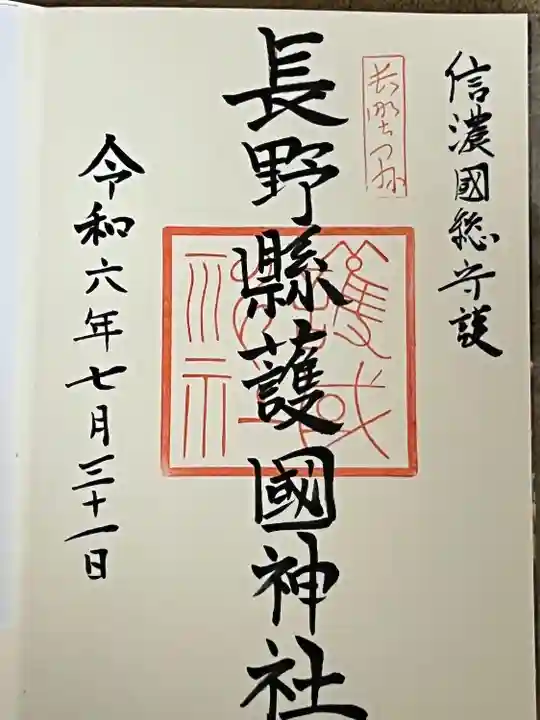 信濃國総守護
長野縣
長野縣護國神社
令和六年七月三十一日